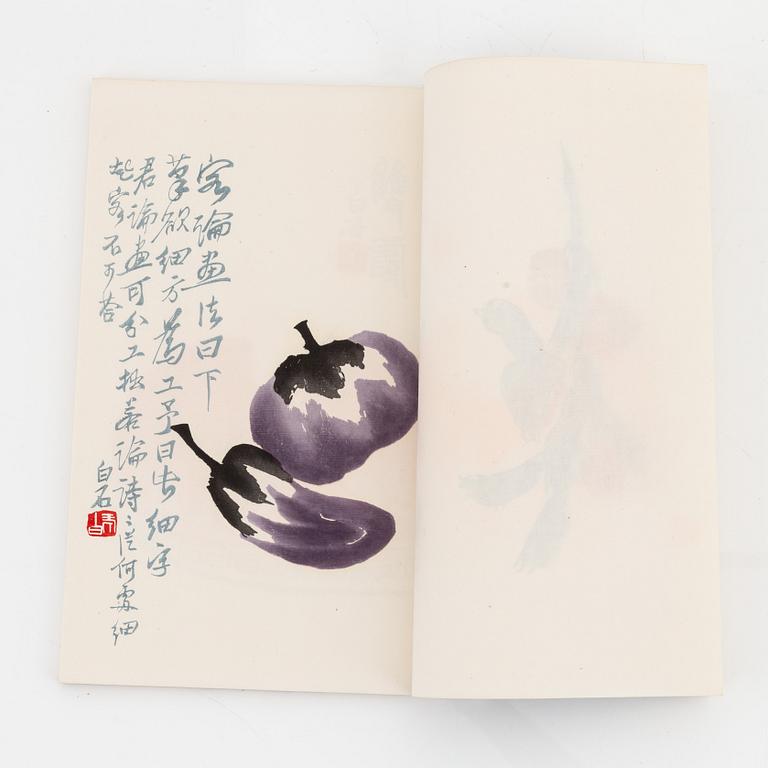 客論畫法曰下
筆欲細方為工予曰此細字
君論畫可分工拙若論詩之從何處細
起客不可答
白石